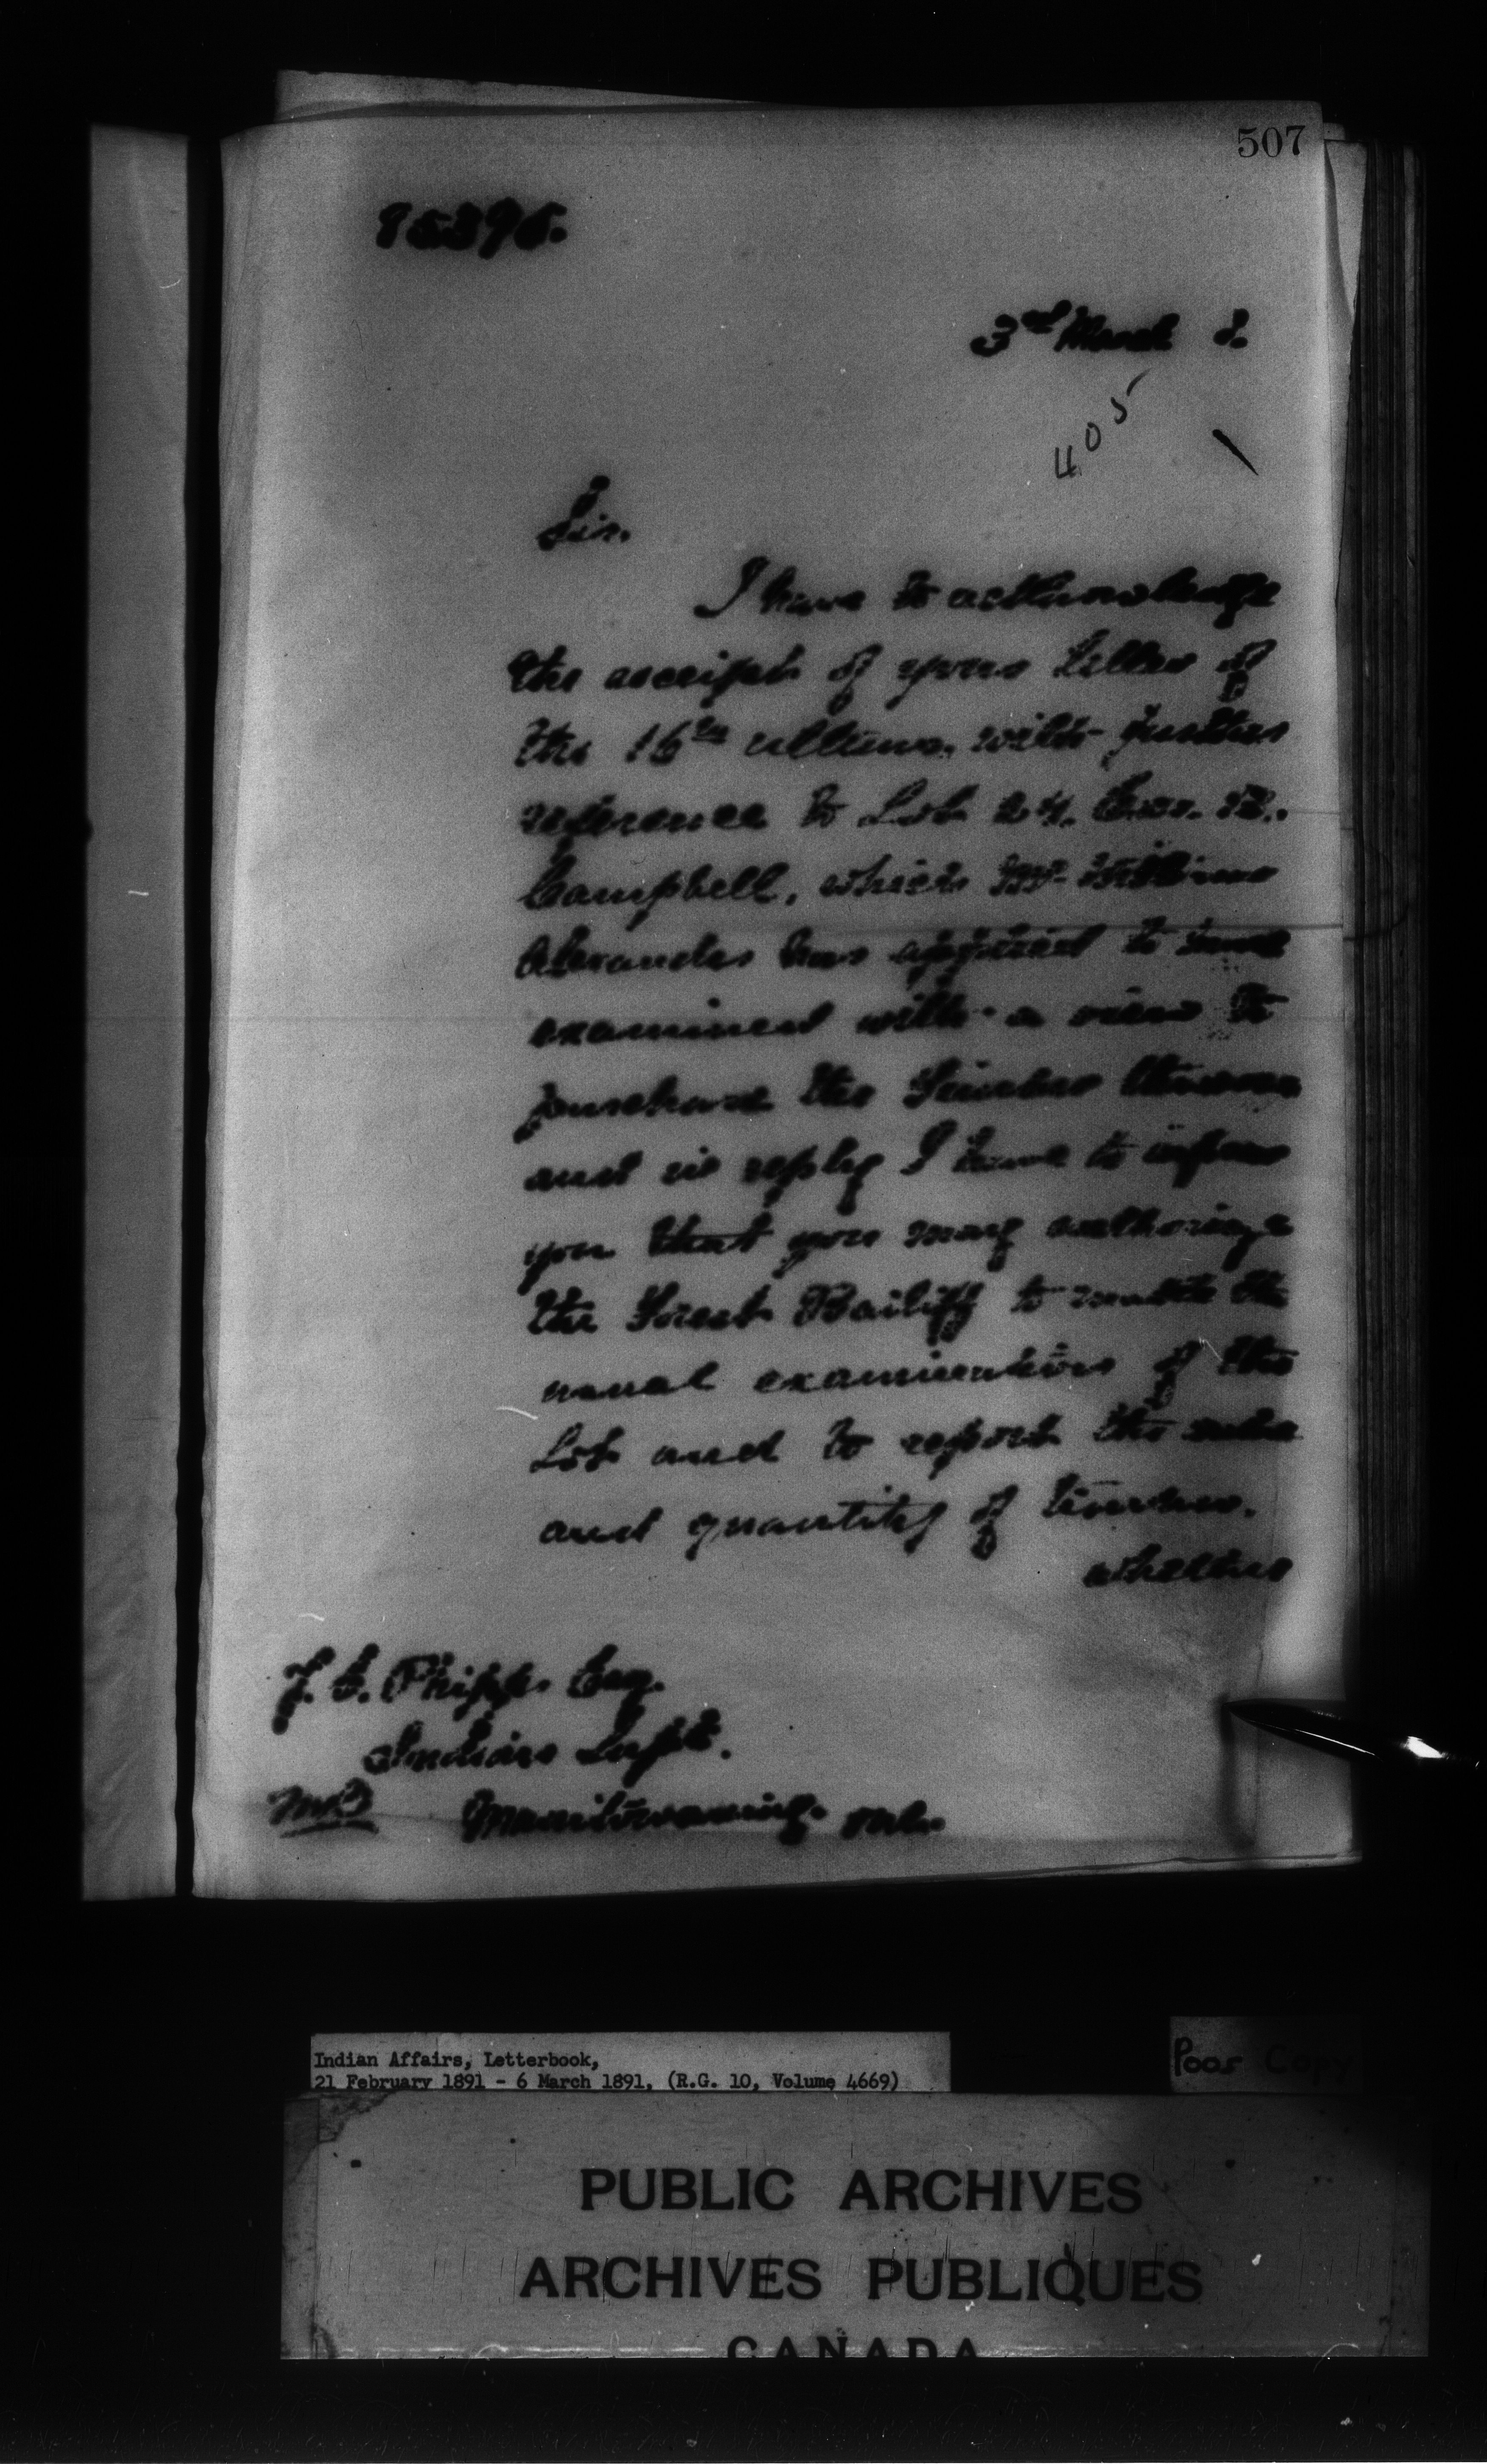 507
3rd March
405
Sir.
I have to acknowledge
the receipt of your letter of
the 16th ultimo. with further
reference to Lot 24. Con.
Campbell, which Mr William
Alexander has applied to have
examined with a view to
purchase the Timber thereon
and in reply I have to inform
you that you may authorize
the Forest Bailiff to make the
usual examination of the
Lot and to report the value
and quantity of timber.
whether
Phipps Esq.
Indian Supt.
Manitowaning. Ont.
Indian Affairs, Letterbook,
21 February 1891 - 6 March 1891, (R.G. 10, Volume 4669)
Poor Copy
PUBLIC ARCHIVES
ARCHIVES PUBLIQUES
CANADA